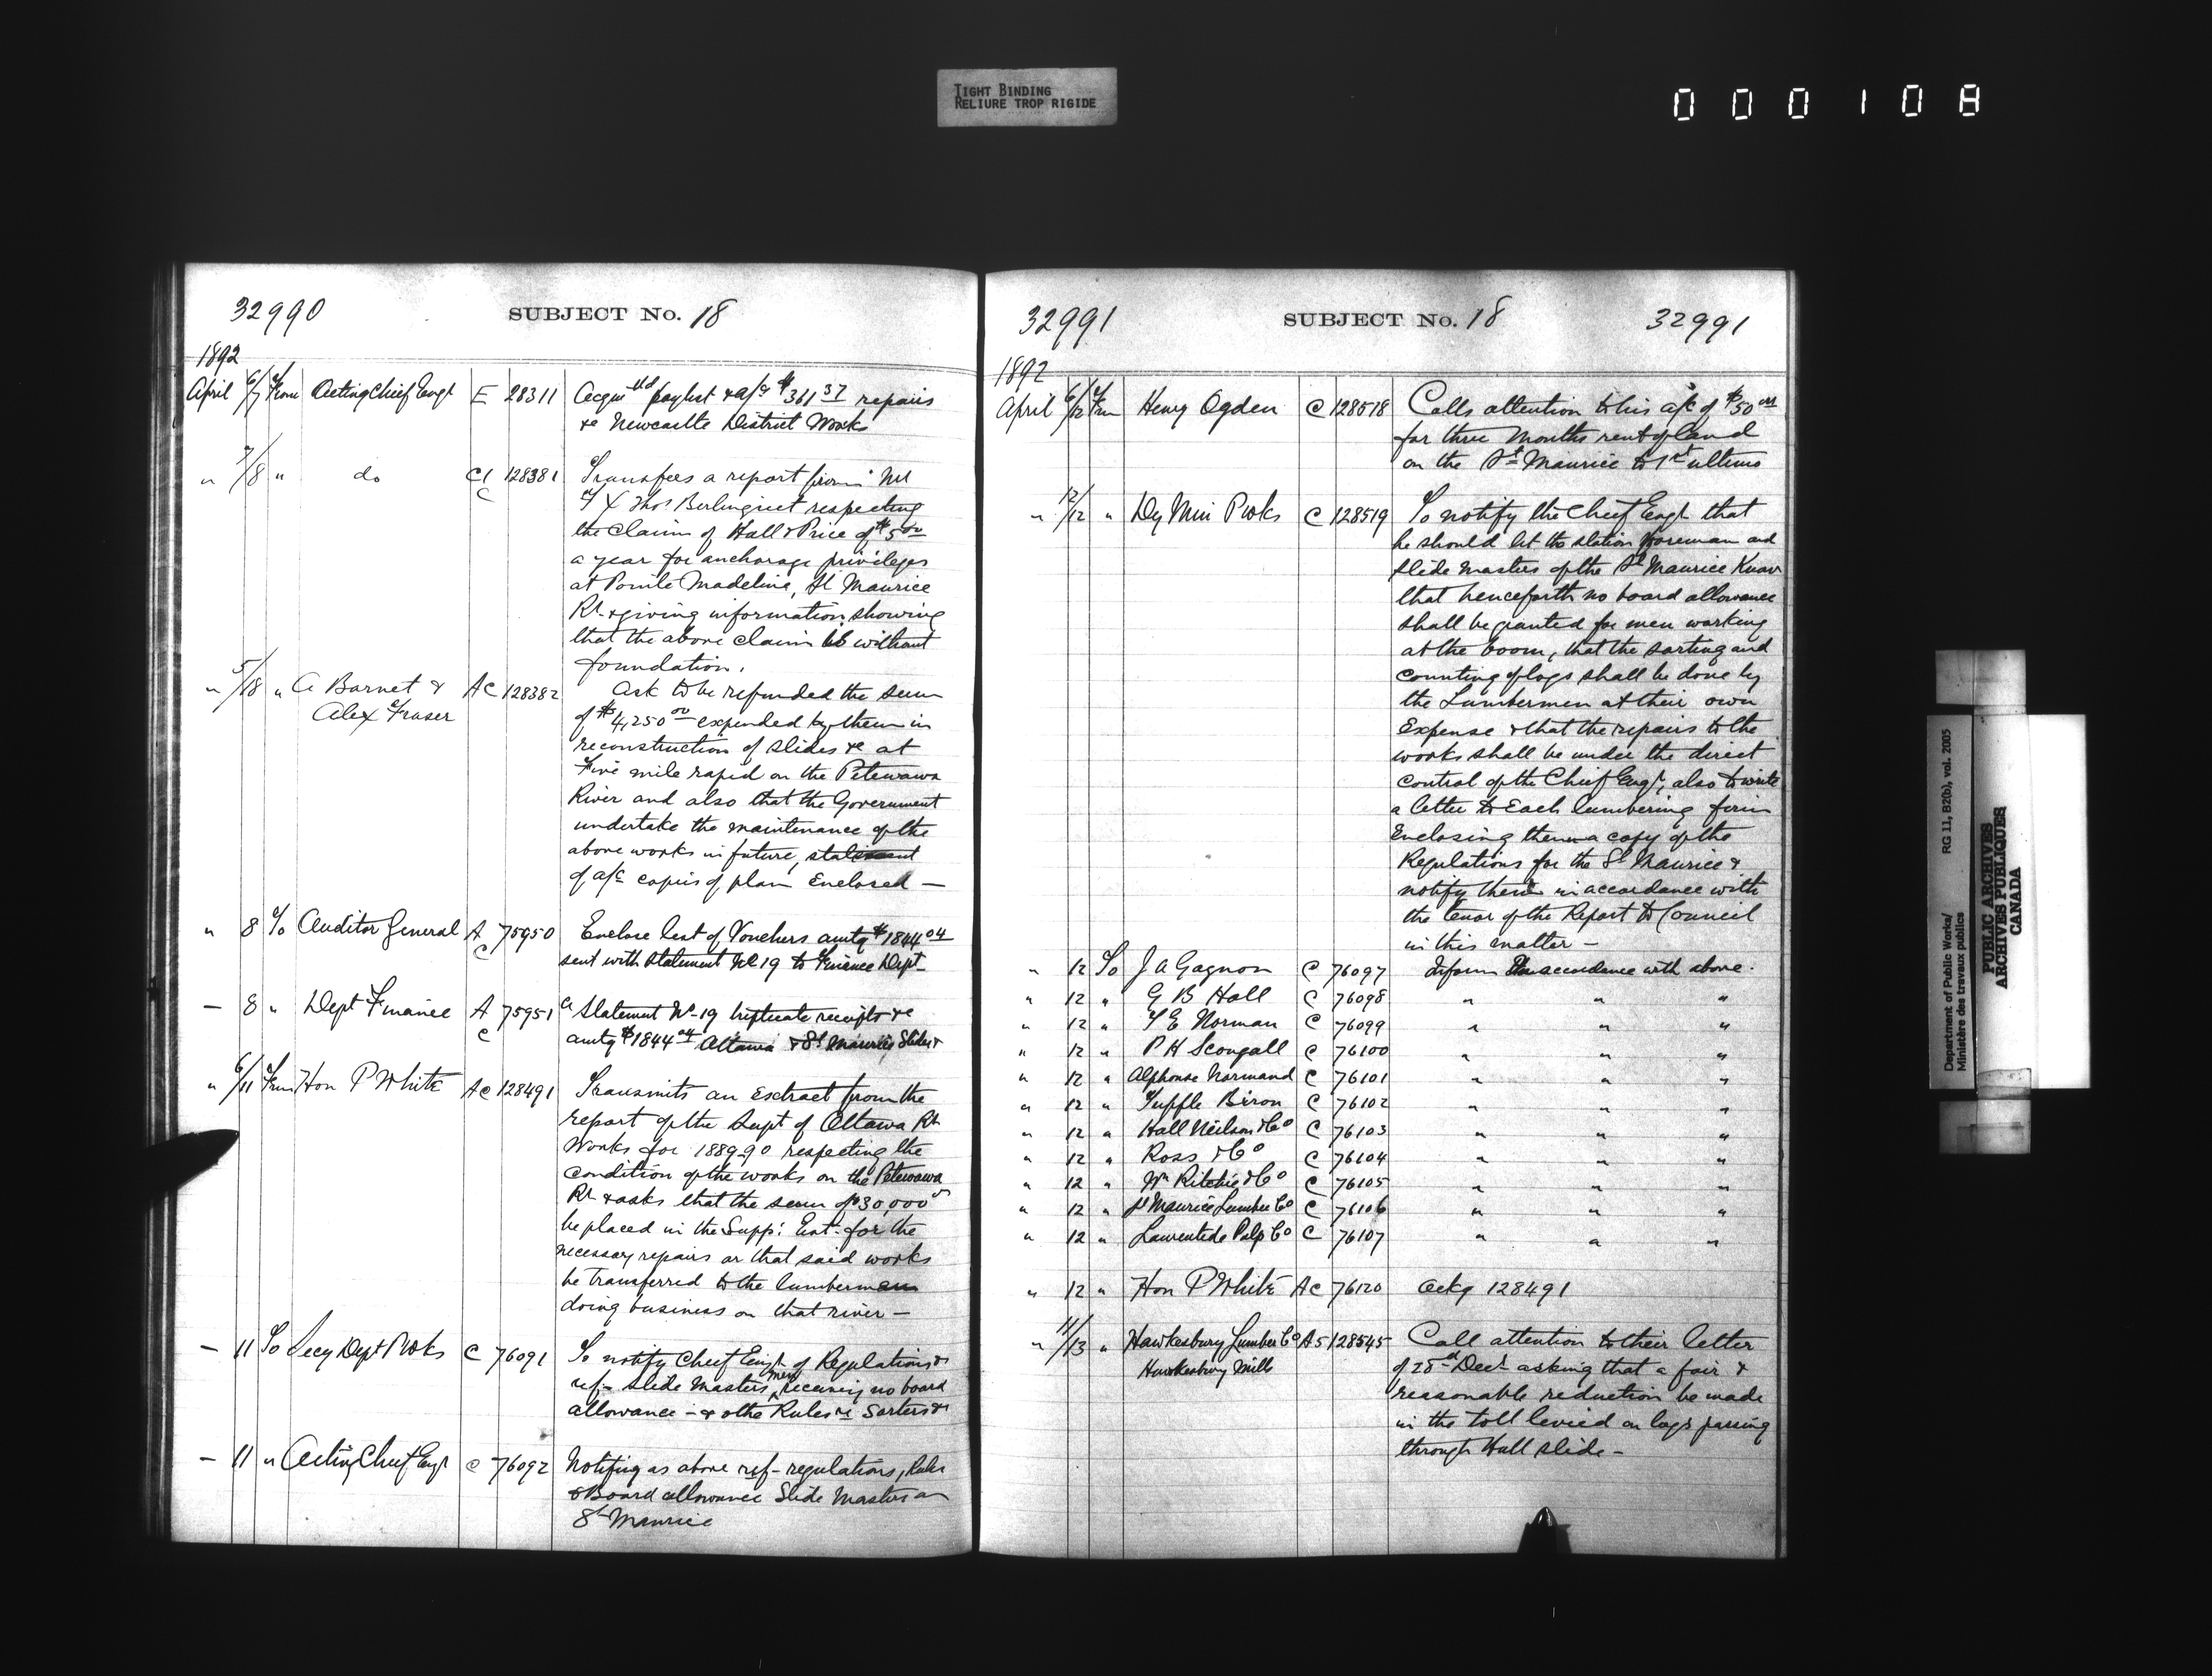 TIGHT BINDING
RELIURE TROP RIGIDE
000108
32990 SUBJECT No. 18
1892
April 6/7 From Acting Chief Engr E 28311 Acqm ttd paylist & a/c $361 37 repairs
&c Newcastle District Works
" 7/8 " do Cl C 128381 Transfers a report from Mr
F X Thos Berlinguet respecting
the Claim of Hall & Price of $500
a year for anchorage privileges
at Pointe Madeline, St Maurice
Rr & giving information showing
that the above claim is without
foundation.
" 5/18 " A Barnet & AC 128382 Ask to be refunded the sum
Alex Fraser of $4,250 00 expended by them in
reconstruction of slides &c at
Five mile rapid on the Petewawa
River and also that the Government
undertake the maintenance of the
above works in future, statement
of a/c copies of plan Enclosed —
" 8 To Auditor General A C 75950 Enclose list of Vouchers amtg $1844 04
sent with statement No 19 to Finance Dept
— 8 " Dept Finance A C 75951 Statement No 19 triplicate receipts &c
amtg $1844 04 Ottawa & St Maurice Slides
" 6/11 From Hon P White AC 128491 Transmits an extract from the
report of the Supt of Ottawa Rr
Works for 1889-90 respecting the
condition of the works on the Petewawa
Rr & asks that the sum of $30,000
be placed in the Supp: Est. for the
necessary repairs or that said works
be transferred to the lumbermen
doing business on that river —
— 11 To Secy Dept P Wks C 76091 To notify Chief Engr of Regulations &
ref- slide masters men receiving no board
allowance — & othe Rules re Sorters &
— 11 " Acting Chief Engr C 76092 Notifing as above ref- regulations, Rules
& Board allowance Slide Masters on
St Maurice
32991 SUBJECT No. 18 32991
1892
April 6/12 From Henry Ogden C 128518 Calls attention to his a/c of $50 00
for three months rent of land
on the St Maurice to 1st ultimo
" 12/12 " Dy Min P Wks C 128519 To notify the Chief Engr that
he should let the station foreman and
slide masters of the St Maurice Know
that henceforth no board allowance
shall be granted for men working
at the boom, that the sorting and
counting of logs shall be done by
the Lumbermen at their own
Expense & that the repairs to the
works shall be under the direct
control of the Chief Engr, also to write
a letter to Each lumbering firm
Enclosing them a copy of the
Regulations for the St Maurice &
notify them in accordance with
the tenor of the Report to Council
in this matter —
" 12 To J A Gagnon C 76097 Inform in accordance with above.
" 12 " G B Hall C 76098 " " "
" 12 " T E Norman C 76099 " " "
" 12 " P H Scougall C 76100 " " "
" 12 " Alphonse Normand C 76101 " " "
" 12 " Biron C 76102 " " "
" 12 " Hall Neilson & Co C 76103 " " "
" 12 " Ross & Co C 76104 " " "
" 12 " Wm Ritchie & Co C 76105 " " "
" 12 " St Maurice Lumber Co C 76106 " " "
" 12 " Laurentide Pulp Co C 76107 " " "
" 12 " Hon P White AC 76120 Ackg 128491
" 11/13 " Hawkesbury Lumber Co A5 128545 Call attention to their letter
Hawkesbury Mills of 28th Decr asking that a fair &
reasonable reduction be made
in the toll levied on logs passing
through Hull slide —
Department of Public Works/
Ministère des travaux publics
RG 11, B2(b), vol. 2005
PUBLIC ARCHIVES
ARCHIVES PUBLIQUES
CANADA